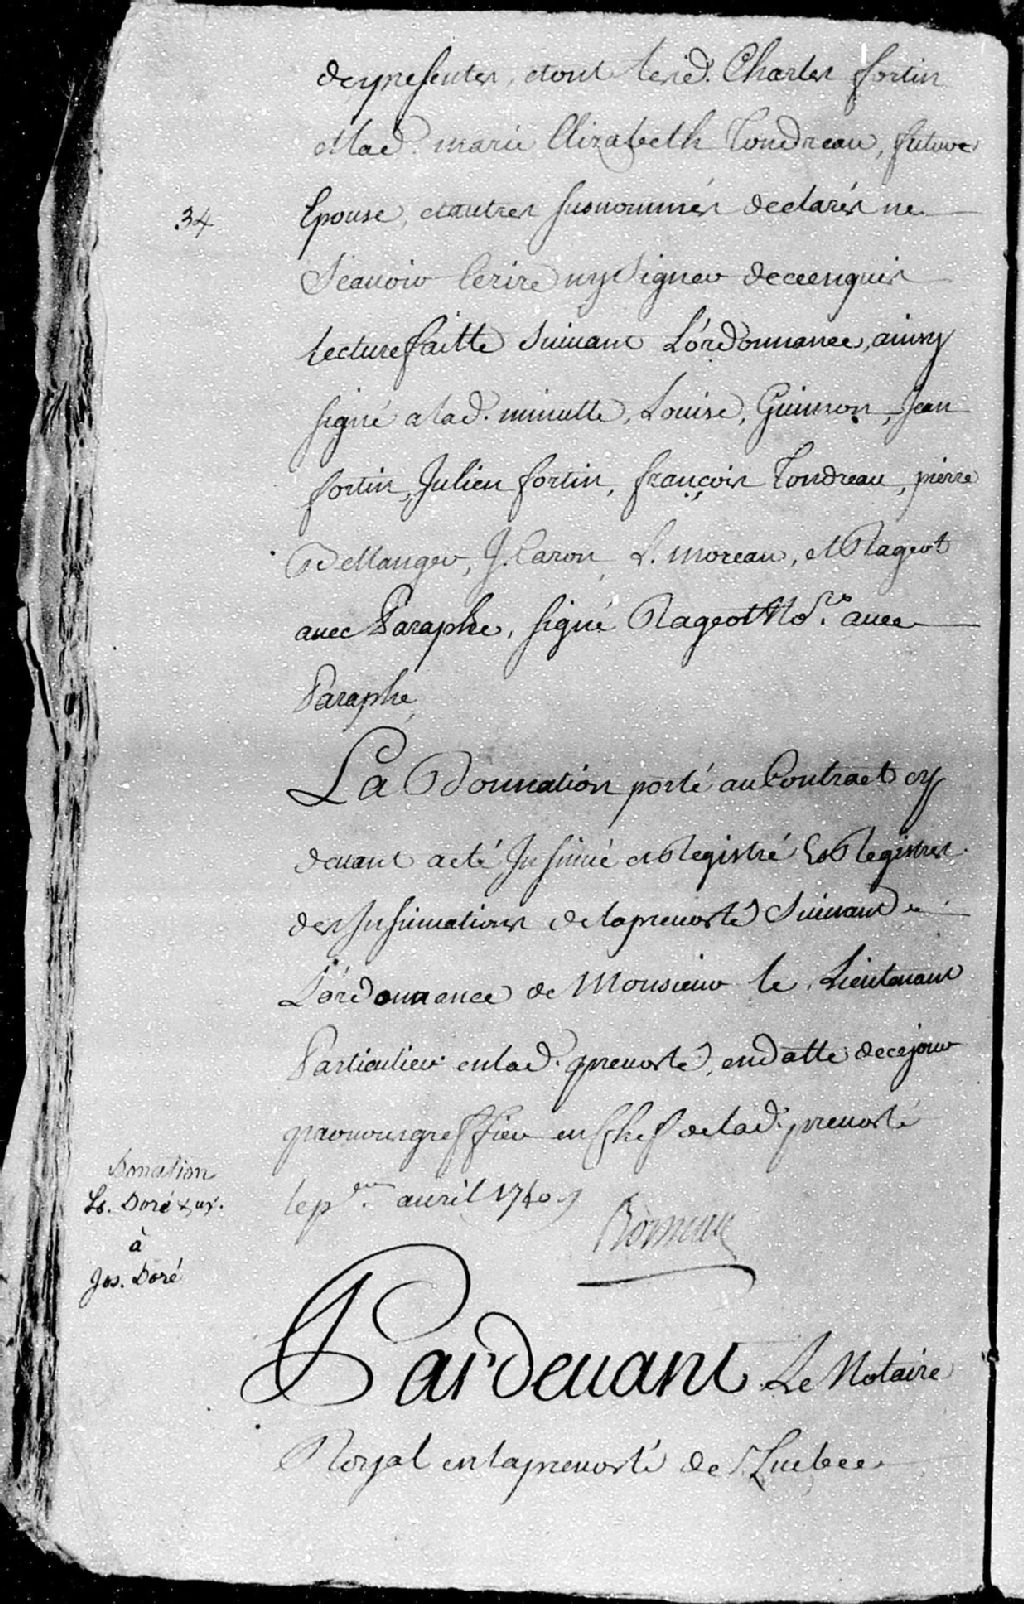 des presentes, et ont lesd. Charles fortin
et lad. marie Elizabeth Tondreau, future
34
Epouse, et autres susnommés declarés ne
Scauoir Ecrire ny Signer de ce enquis
lecture faitte Suiuant L'ordonnance, ainsy
signé a lad. minutte, Louise, Guimon, Jean
fortin, Julien fortin, françois Tondreau, pierre
Bellanger, J. Caron, L. moreau, et Rageot
auec Paraphe, signé Rageot No.re auec
Paraphe
La Donnation porté au Contract cy
deuant a eté Insinué et Registré Es Registres
des Insinuations de la preuosté Suiuant
L'ordonnance de Monsieur le Lieutenant
Particulier en lad. preuosté, en datte de ce jour
par nous greffier en Chef de lad. preuosté
le p.er auril 1740
Boisseau
Donation
Ls. Doré & ux.
à
Jos. Doré
Pardeuant Le Notaire
Royal en la preuosté de Quebec